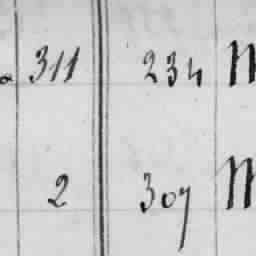 311 234 M
2 307 M